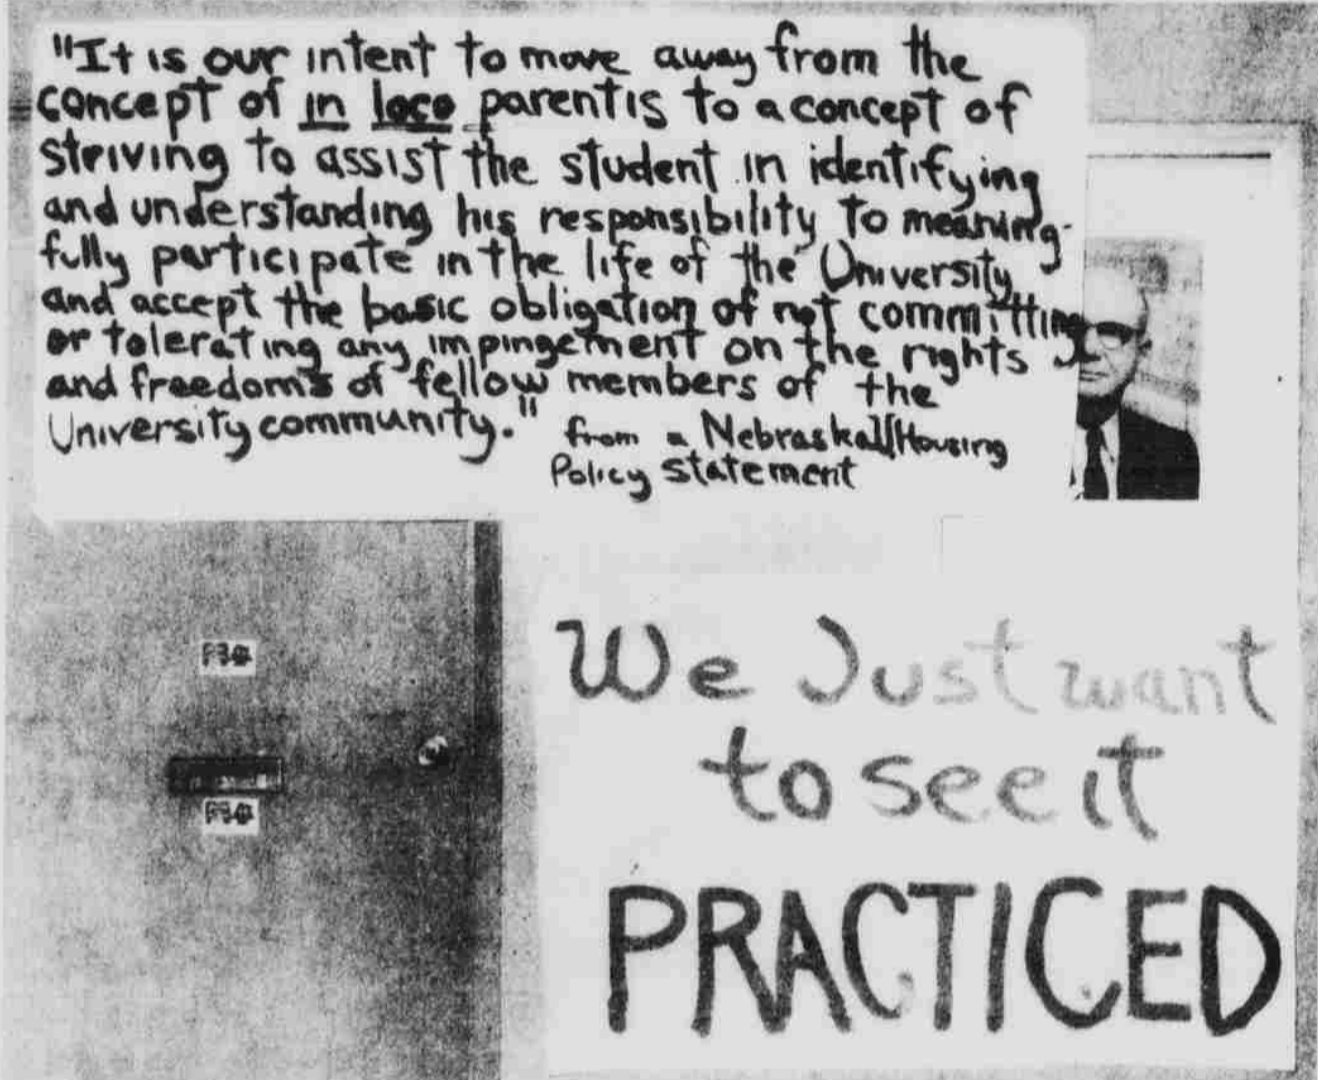 "It is our intent to move away from the
concept of in loco parentis to a concept of
striving to assist the student in identifying
and understanding his responsibility to meaning-
fully participate in the life of the University
and accept the basic obligation of not committing
or tolerating any impingement on the rights
and freedoms of fellow members of the
University community."
from a Nebraska Housing
Policy statement
We Just want
to see it
PRACTICED